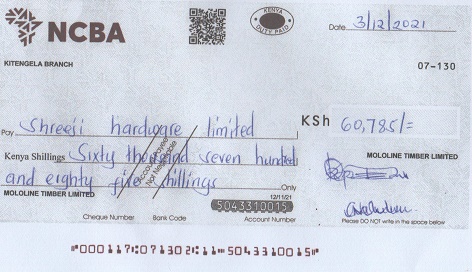 NCBA
KENYA
DUTY PAID
Date 3/12/2021
KITENGELA BRANCH
07-130
Pay Shreeji hardware limited
KSh 60,785/=
Account Payee
Not Negotiable
Kenya Shillings Sixty thousand seven hundred
and eighty five shillings Only
MOLOLINE TIMBER LIMITED
MOLOLINE TIMBER LIMITED
12/11/21
5043310015
Cheque Number Bank Code Account Number
Please DO NOT write in the space below
"000117:071302:11"5043310015"